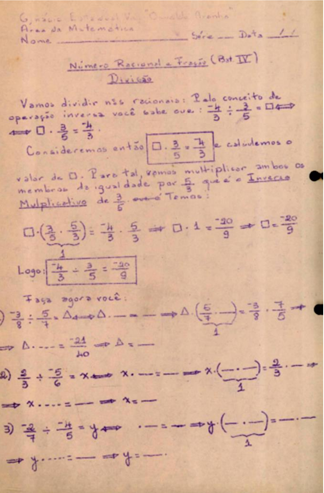 Ginásio Estadual "Oswaldo Aranha"
Área da Matemática
Nome Série Data / /
Número Racional e Fração (Bat IV)
Divisão
Vamos dividir nºs racionais. Pelo conceito de
operação inversa você sabe que: -4/3 ÷ 3/5 = □ ⟺
⟺ □ · 3/5 = -4/3
Consideremos então □ · 3/5 = -4/3 e calculemos o
valor de □. Para tal, vamos multiplicar ambos os
membros da igualdade por 5/3 que é o Inverso
Multiplicativo de 3/5. Temos:
□ · (3/5 · 5/3) = -4/3 · 5/3 ⟹ □ · 1 = -20/9 ⟹ □ = -20/9
1
Logo: -4/3 ÷ 3/5 = -20/9
Faça agora você:
1) -3/8 ÷ 5/7 = Δ ⟺ Δ · — = — ⟹ Δ · (5/7 · —) = -3/8 · 7/5 ⟹
1
⟹ Δ · .... = -21/40 ⟹ Δ = —
2) 2/3 ÷ -5/6 = x ⟺ x · — = — ⟹ x · (— · —) = 2/3 · — ⟹
1
⟹ x · .... = — ⟹ x = —
3) -2/7 ÷ -4/5 = y ⟺ .... · — = — ⟹ y · (— · —) = — · —
1
⟹ y · .... = — ⟹ y = —